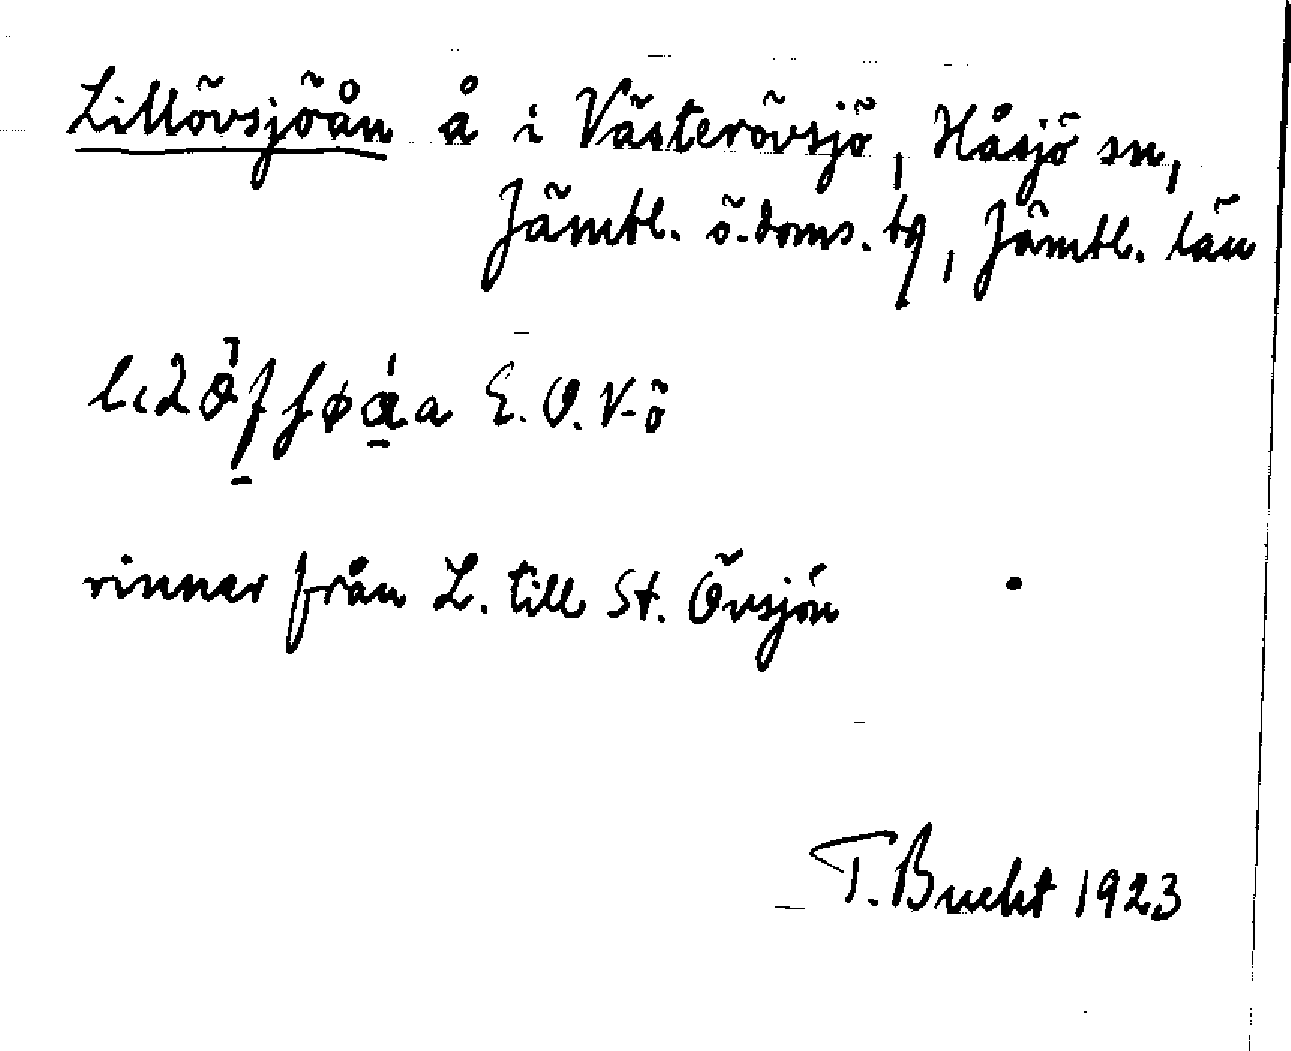 Lillövsjöån å i Västerövsjö, Håsjö sn,
Jämtl. ö. doms. tg, Jämtl. län
E. O. V-ö
rinner från L. till St. Övsjön
T. Bucht 1923